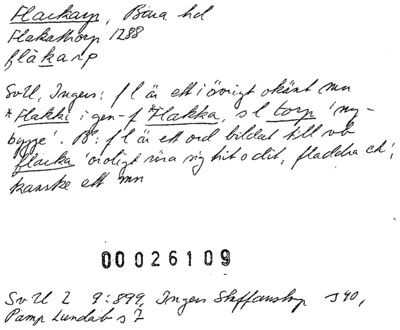 Flackarp, Bara hd
Flakathorp 1288
flåkarp
SvU, Ingers: f l är ett i övrigt okänt mn
*Flakki i gen-f *Flakka, s l torp 'ny-
bygge'. B: f l är ett ord bildat till vb
flacka 'oroligt röra sig hit o dit, fladdra etc',
kanske ett mn
00026109
SvU 2 9:899, Ingers Staffanstorp s 40,
Pamp Lundab s 7